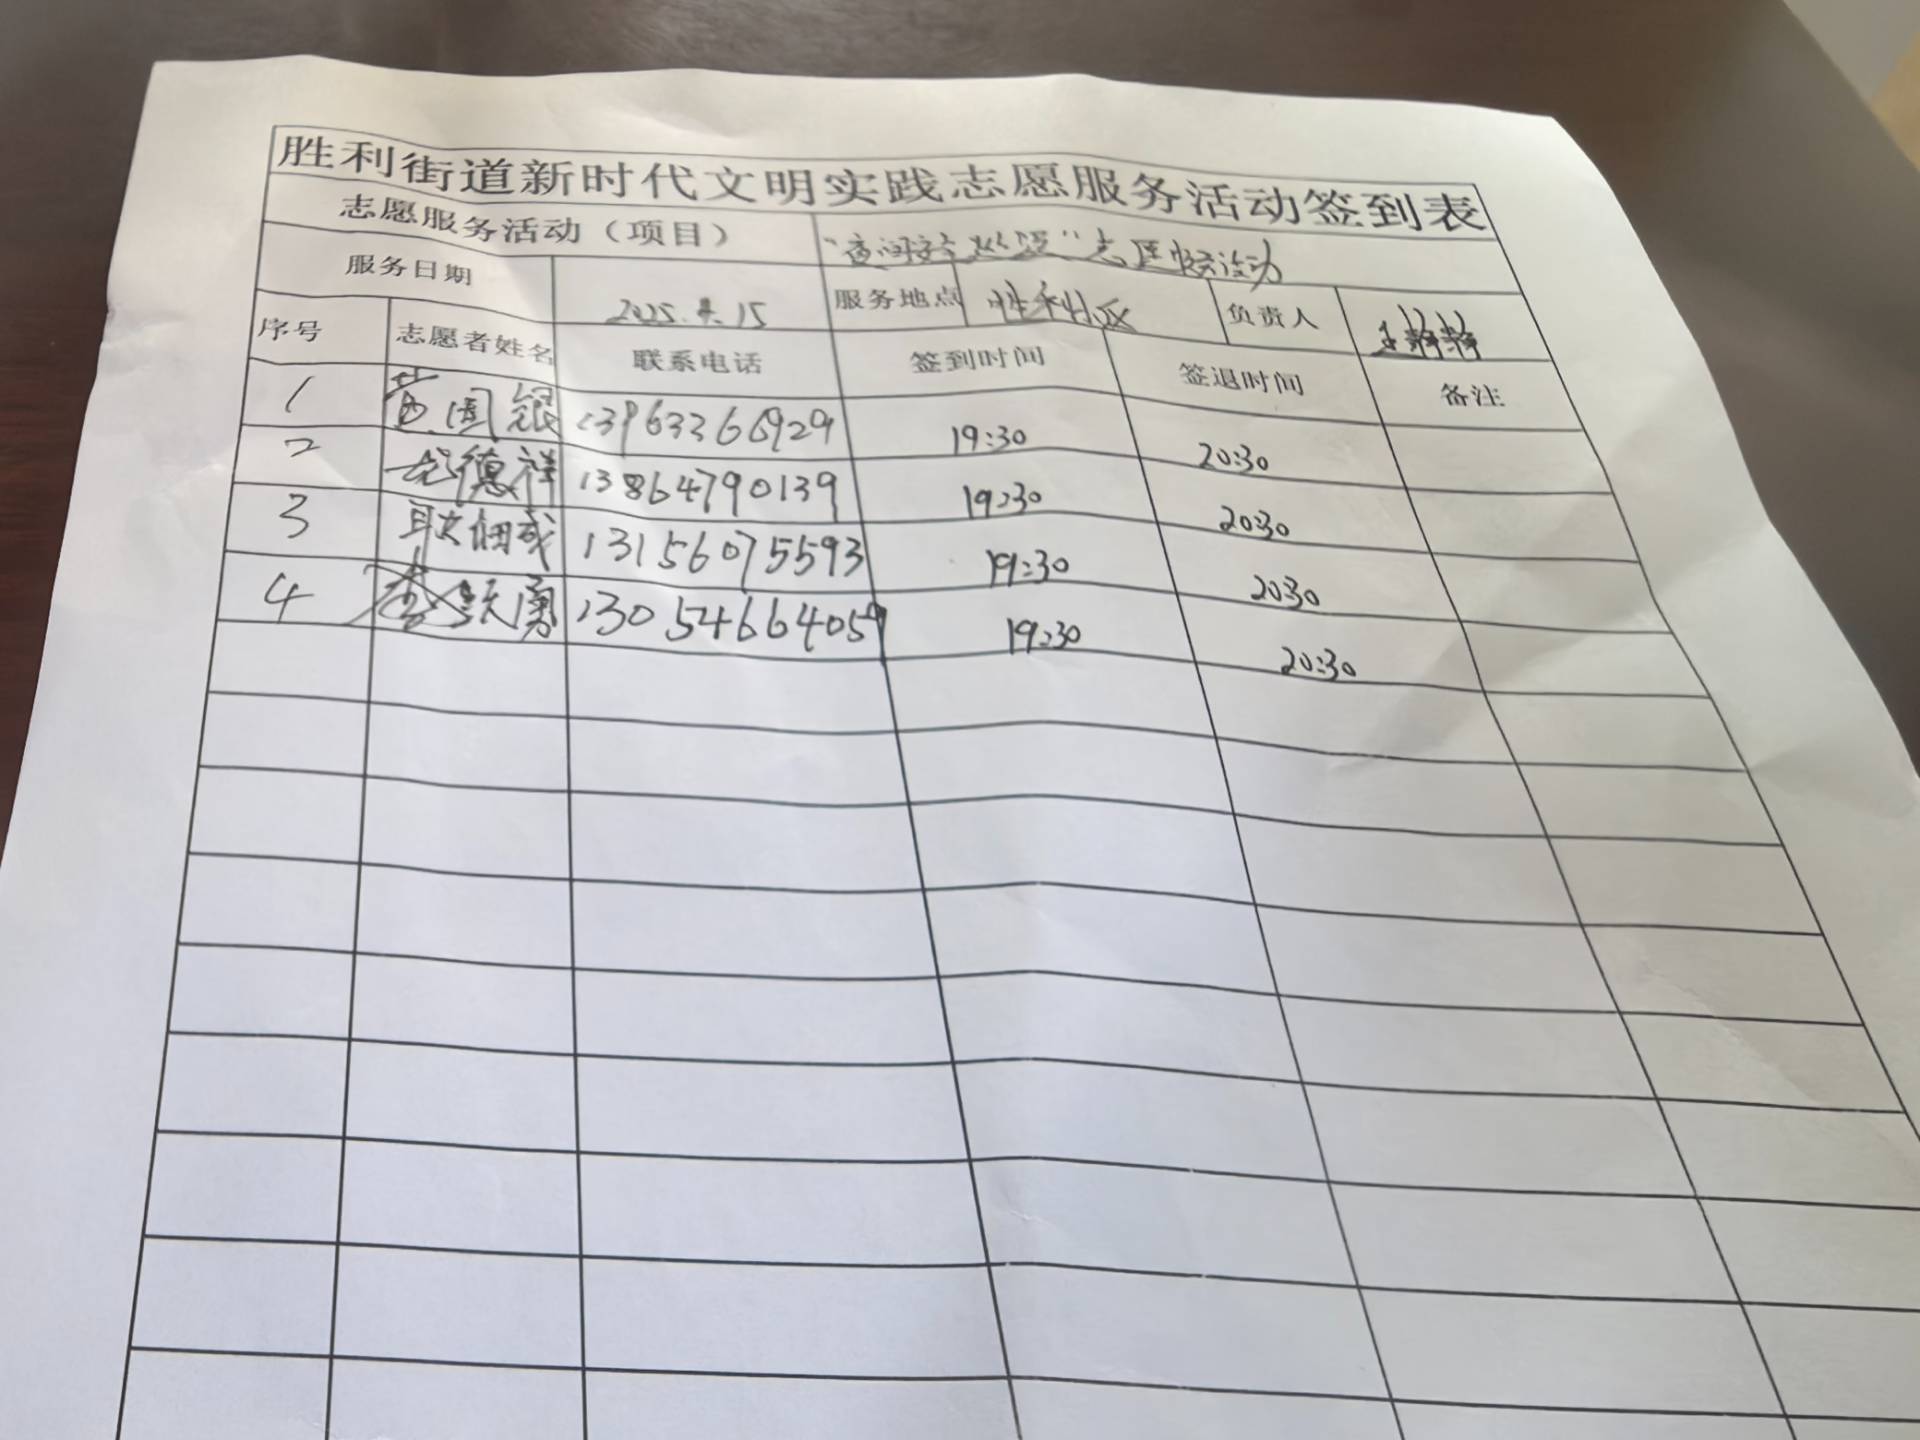 胜利街道新时代文明实践志愿服务活动签到表
志愿服务活动（项目） “夜间安全巡逻”志愿服务活动
服务日期 2025.4.15 服务地点 胜利社区 负责人 王静静
序号 志愿者姓名 联系电话 签到时间 签退时间 备注
1 国银 13963366929 19:30 20:30
2 德祥 13864790139 19:30 20:30
3 耿 13156075593 19:30 20:30
4 勇 13054664059 19:30 20:30